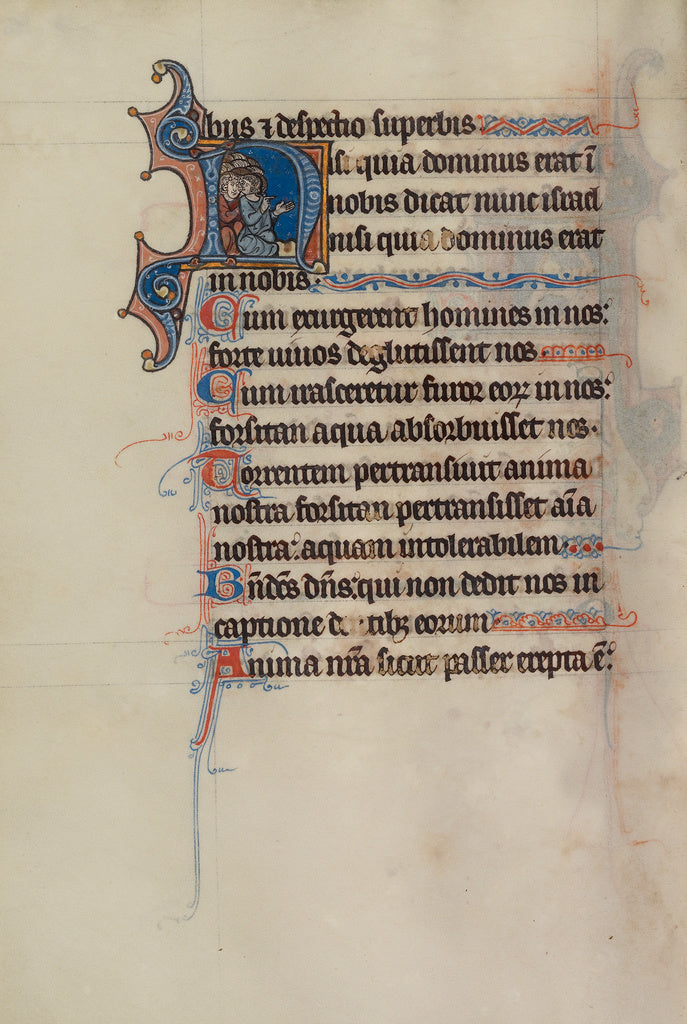 bus ⁊ despectio superbis
Nisi quia dominus erat ī
nobis dicat nunc israel
nisi quia dominus erat
in nobis.
Cum exurgerent homines in nos:
forte uiuos deglutissent nos
Cum irasceretur furor eoꝝ in nos:
forsitan aqua absorbuisset nos.
Torrentem pertransiuit anima
nostra forsitan pertransisset aīa
nostra: aquam intolerabilem.
Bn̄dc̄s dn̄s: qui non dedit nos in
captione eorum.
Anima nr̄a sicut passer erepta ē: